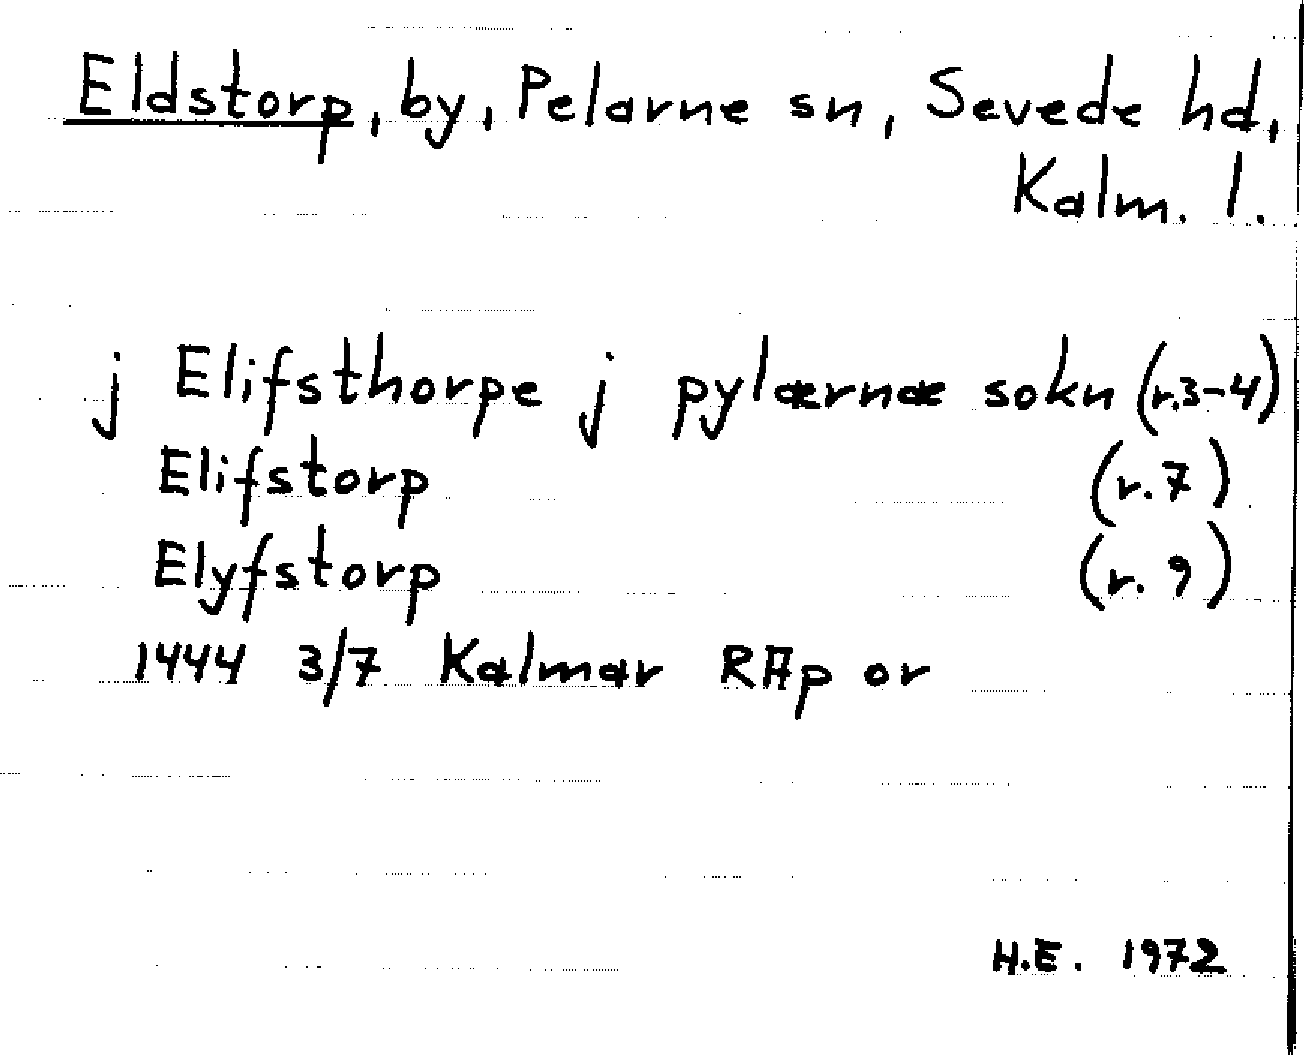 Eldstorp, by, Pelarne sn, Sevede hd,
Kalm. l.
j Elifsthorpe j pylærnæ sokn (r.3-4)
Elifstorp (r.7)
Elyfstorp (r. 9)
1444 3/7 Kalmar RAp or
H.E. 1972